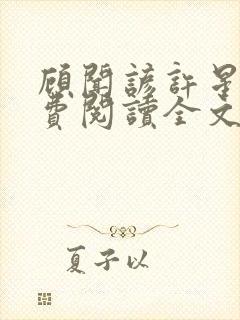 顧聞諺許星
費閱讀全文
夏子以